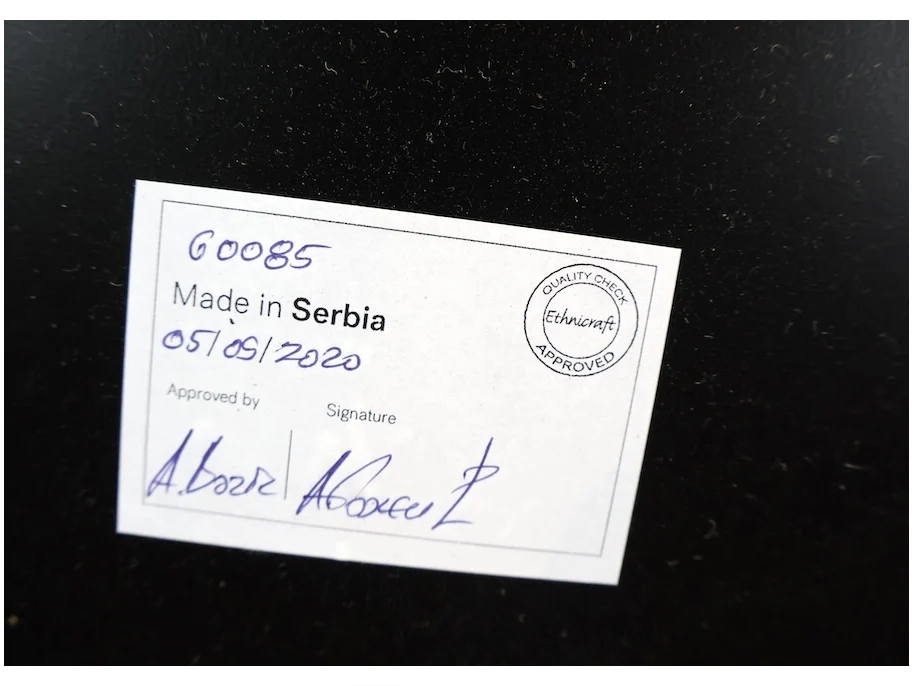 60085
Made in Serbia
05/09/2020
QUALITY CHECK
Ethnicraft
APPROVED
Approved by
Signature